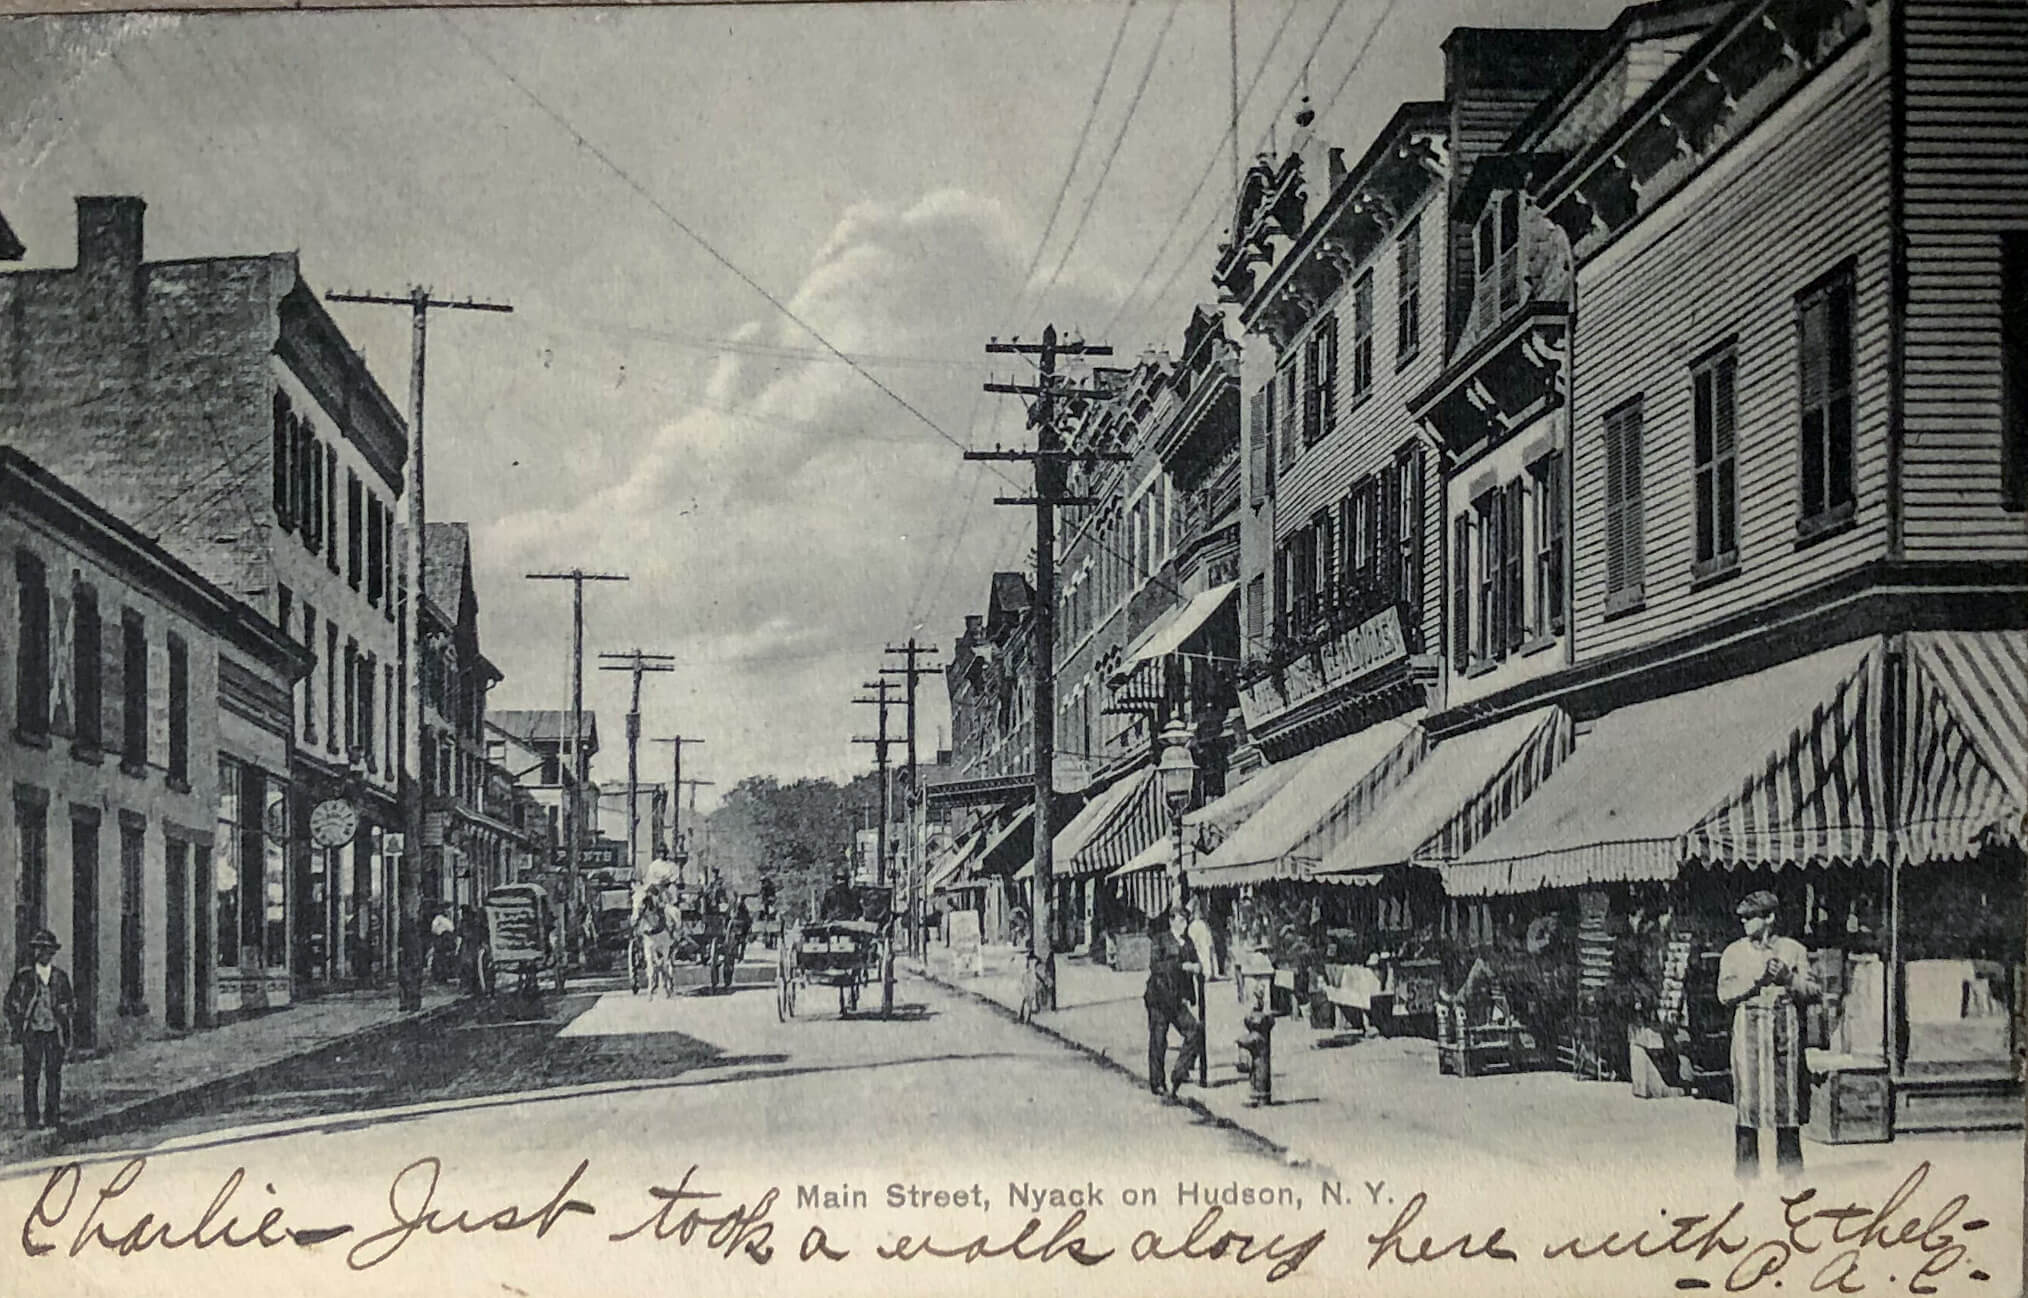 PAINTS
Main Street, Nyack on Hudson, N. Y.
Charlie – Just took a walk along here with Ethel –
– P. A. C. –